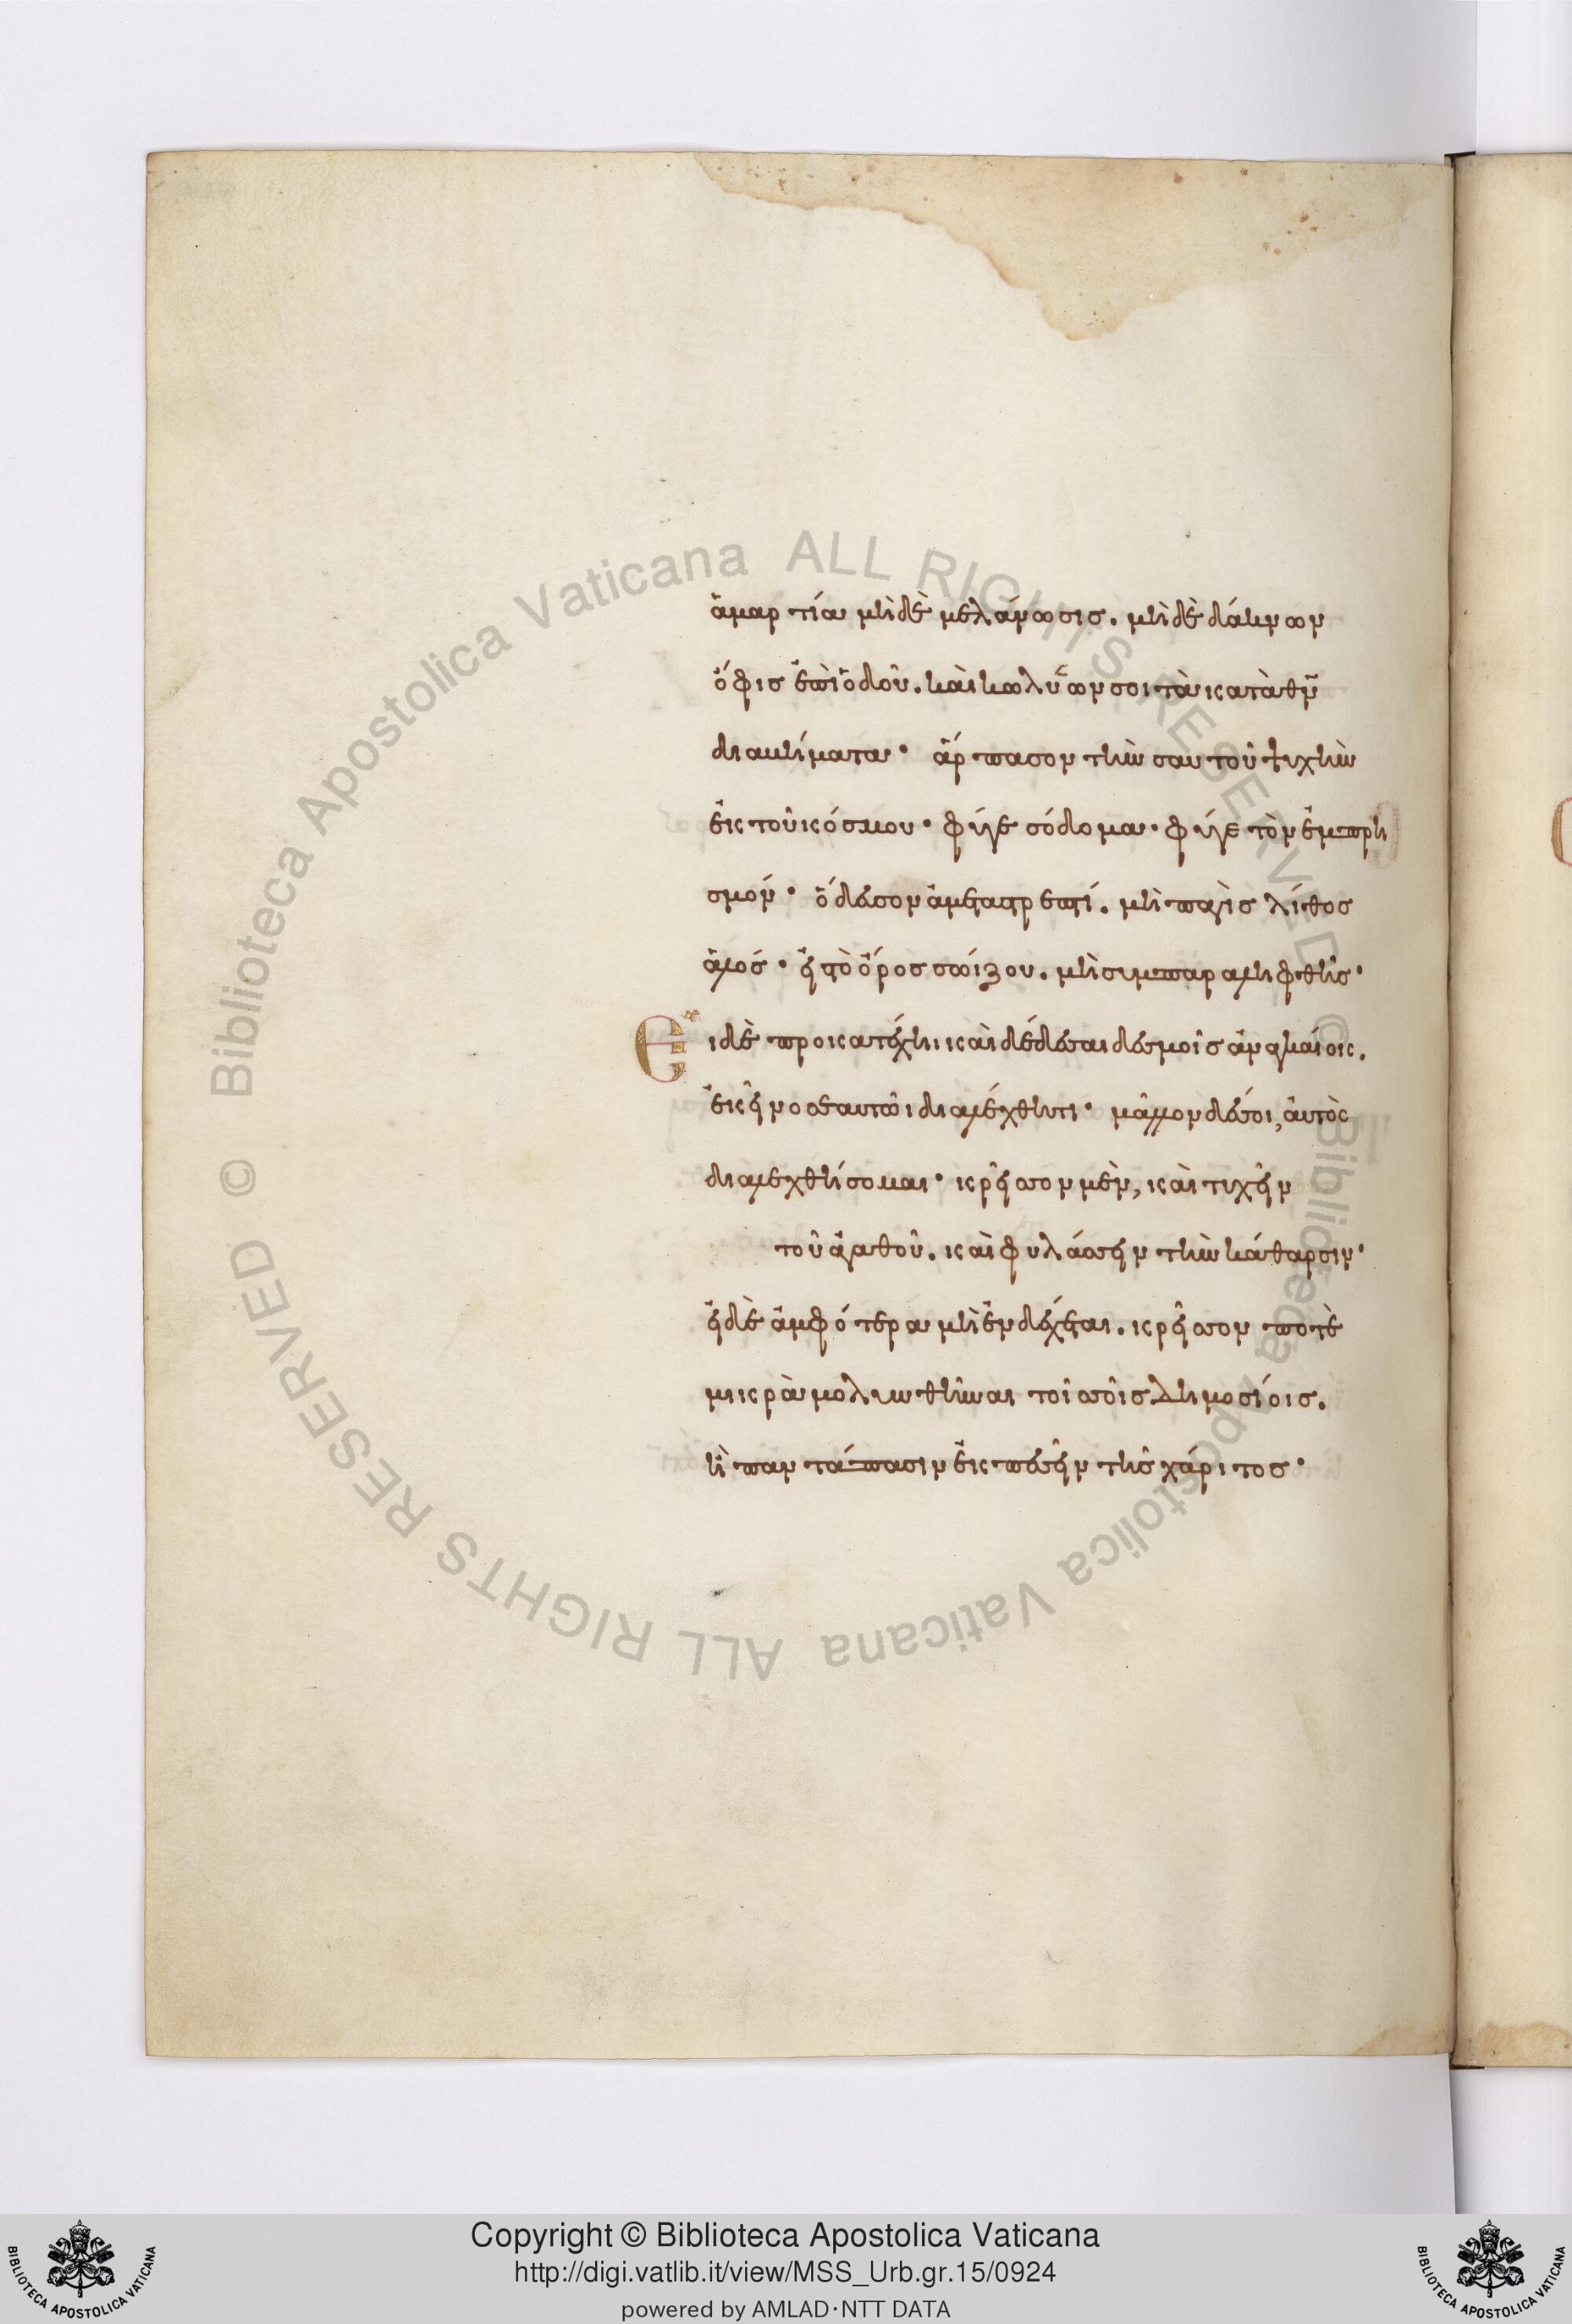 ἁμαρτία μὴ δὲ μελάνωσις. μὴ δὲ δάκνων
ὄφις ἐπὶ ὁδοῦ. καὶ κωλύων σοι τὰ κατὰ θν̅
διαβήματα· ἅρπασον τὴν σαυτοῦ ψυχὴν
ἐκ τοῦ κόσμου· φύγε σόδομα· φύγε τὸν ἐμπρη
σμόν· ὅδευσον ἀμεταστρεπτί. μὴ παγῆς λίθος
ἁλός· εἰς τὸ ὄρος σώιζου. μὴ συμπαραληφθῆς·
Ει δὲ προκατέχηι καὶ δέδεσαι δεσμοῖς ἀναγκαίοις.
ἐκεῖνος ἑαυτῶι διαλέχθητι· μᾶλλον δέ σοι, αὐτὸς
διαλεχθήσομαι· κρεῖττον μὲν, καὶ τυχεῖν
τοῦ ἀγαθοῦ. καὶ φυλάττειν τὴν κάθαρσιν·
εἰ δὲ ἀμφότερα μὴ ἐνδέχεται. κρεῖττον ποτὲ
μικρὰ μολυνθῆναι τοῖς σοῖς δημοσίοις.
ἢ παντάπασιν ἐκπεσεῖν τῆς χάριτος·
Copyright © Biblioteca Apostolica Vaticana
http://digi.vatlib.it/view/MSS_Urb.gr.15/0924
powered by AMLAD·NTT DATA
BIBLIOTECA APOSTOLICA VATICANA
BIBLIOTECA APOSTOLICA VATICANA
© Biblioteca Apostolica Vaticana ALL RIGHTS RESERVED
© Biblioteca Apostolica Vaticana ALL RIGHTS RESERVED